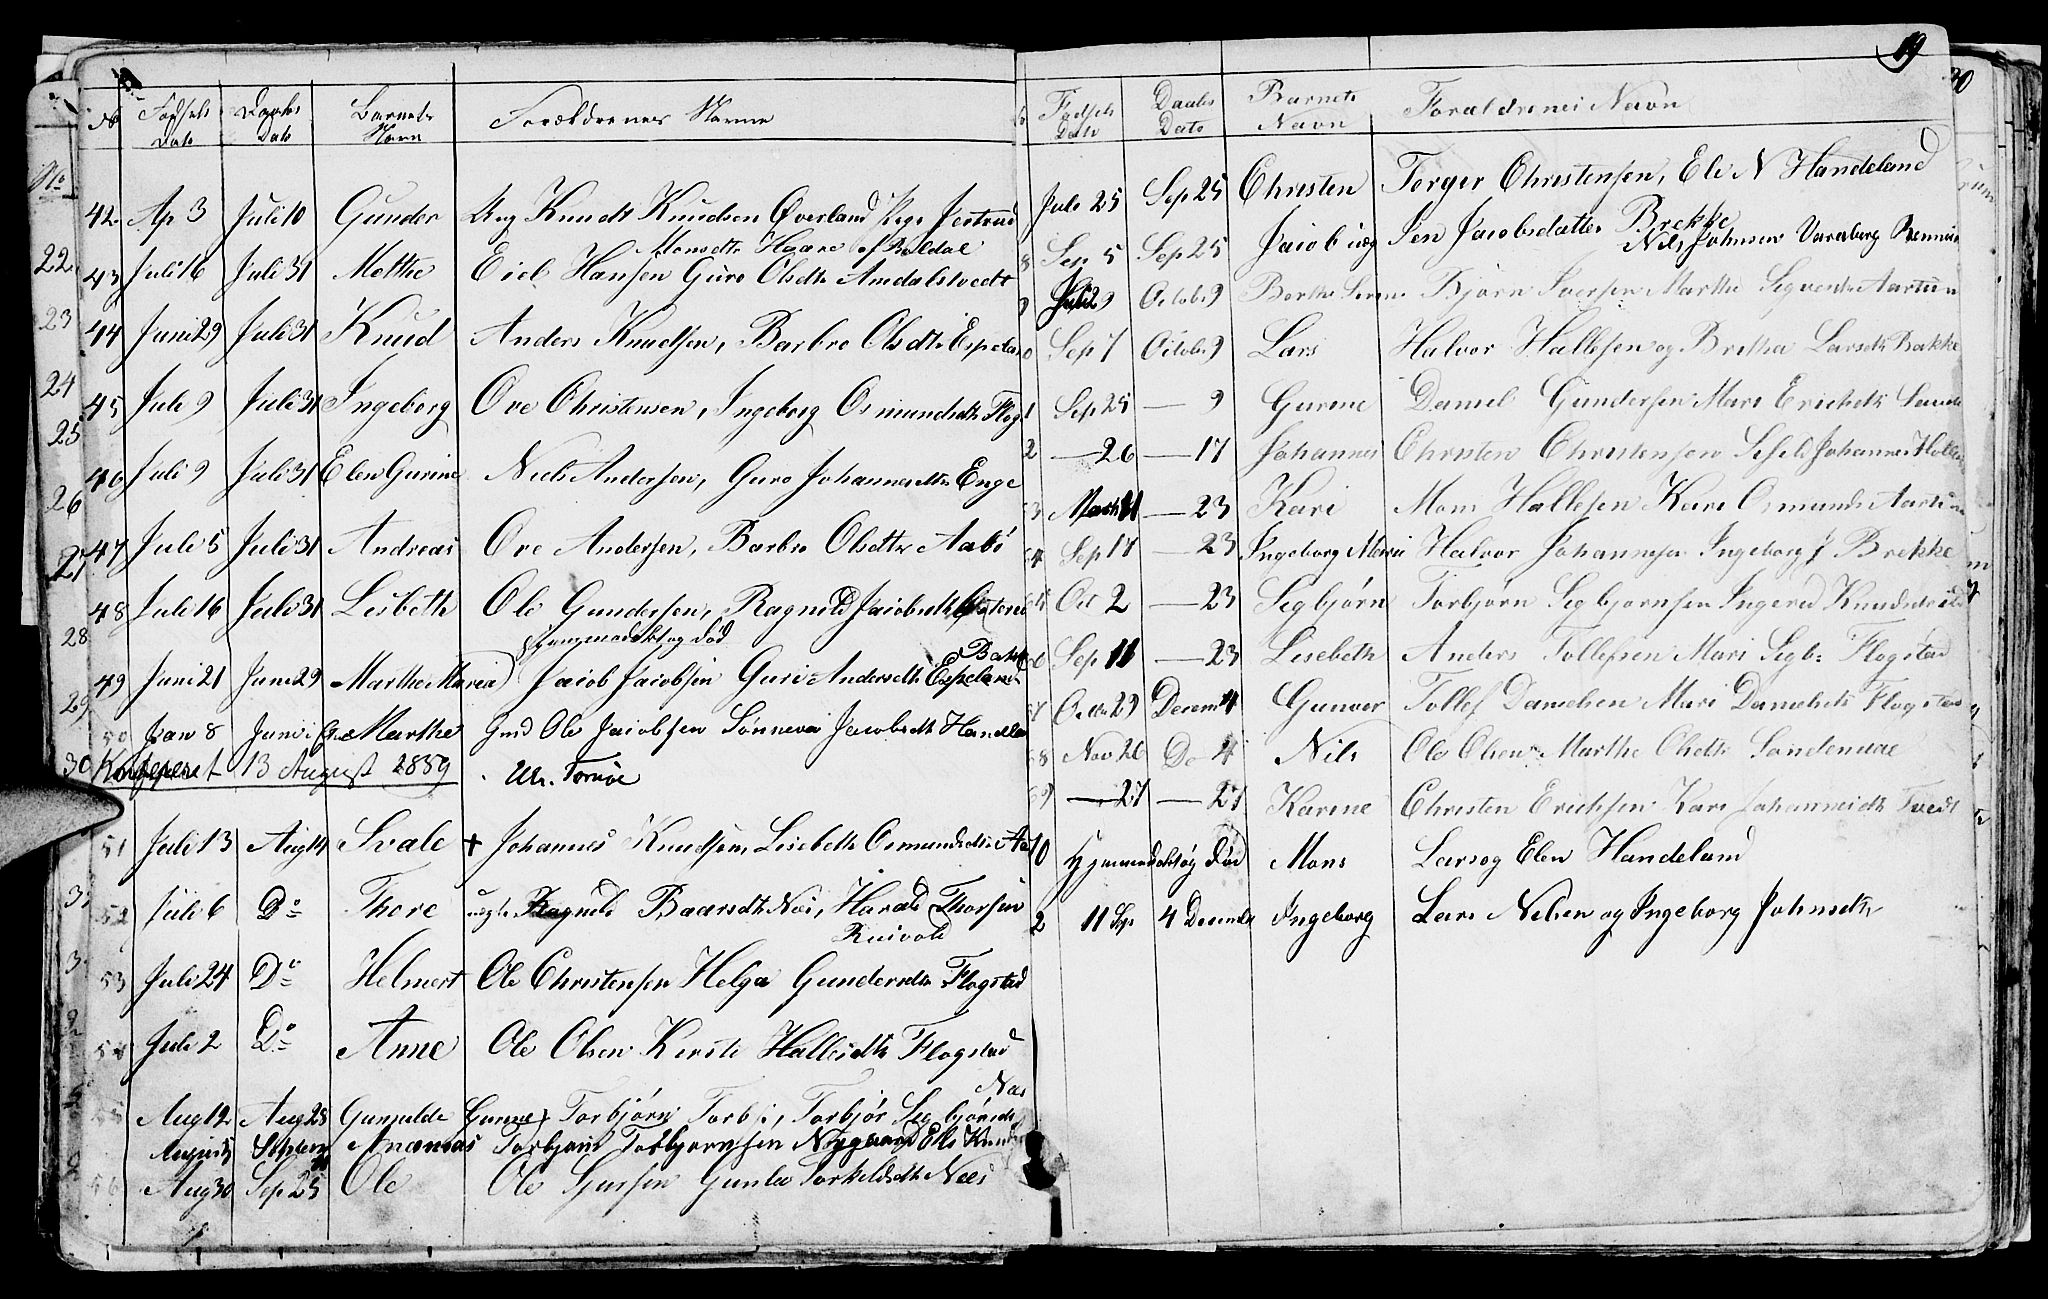 No Fødsels Dato Daabs Dato Barnets Navn Forældrenes Navne
42 Ap 3 Juli 10 Gunder Ung Knudt Knudsen Øverland Pige Jestrud
Monsdtr Haare af Røldal
43 Juli 16 Juli 31 Mothe Eiel Hansen Guro Olsdtr Amdalstvedt
44 Juni 29 Juli 31 Knud Anders Knudsen, Barbro Olsdtr Espeland
45 Juli 9 Juli 31 Ingeborg Ove Christensen, Ingeborg Osmundsdtr Flogs
46 Juli 9 Juli 31 Elen Gurine Niels Andersen, Guro Johannesdtr Enge
47 Juli 5 Juli 31 Andreas Ove Andersen, Barbro Olsdtr Aabö
48 Juli 16 Juli 31 Lisbeth Ole Gundersen, Ragnild Jacobsdtr
hjemmedøbt og død
Bakke
49 Juni 21 Juni 29 Marthe Maria Jacob Jacobsen Guri Andersdtr Espeland
50 Jan 8 Juni Marthe Gmd Ole Jacobsen Sønneva Jacobsdt Handeland
Konfereret 13 August 1859 . Tornøe
51 Juli 13 Aug 14 Svale + Johannes Knudsen Lisebeth Osmundsdtr
52 Juli 6 Do Thore uægte Ragnild Baardsdt Næs, Harald Thorsen
Risvold
53 Juli 24 Do Helmert Ole Christensen Helga Gundersdtr Flogstad
54 Juli 2 Do Anne Ole Olsen Kirsti Hallesdtr Flogstad
Næs
55 Aug 12 Aug 28 Gunjulde Gurine Torbjørn Torbj, Torbjør Segbjörnsdt
August 5 Septem 11 Ananias Torbjorn Torbjornsen Nygaard Elis Knudsd
56 Aug 30 Sep 25 Ole Ole Sjursen Gunla Torkeldsdtr Næs
19
Fødsels Dato Daabs Dato Barnets Navn Forældrenes Navn
Juli 25 Sep 25 Christen Torger Christensen, Eli N Handeland
Brekke
8 Sep 5 Sep 25 Jacob uæg Sen Jacobsdatter Nils Johnsen Varaberg
9 Juli 29 October 9 Berthe Serine Bjørn Iversen Marthe Segvertsdtr Aartun
0 Sep 7 October 9 Lars Halvor Hallesen og Bretha Larsdtr Bakke
1 Sep 25 — 9 Gurine Daniel Gundersen Mari Erichsdtr Sande
2 — 26 — 17 Johannes Christen Christensen Johannes
3 March 11 — 23 Kari Mons Hallesen Kari Osmunds Aartun
4 Sep 17 — 23 Ingeborg Maria Halvor Johannesen Ingeborg J Brekke
Oct 2 — 23 Segbjørn Torbjørn Segbjørnsen Ingered Knudsdtr
6 Sep 11 — 23 Lisebeth Anders Tollefsen Mari Segb: Flogstad
67 October 29 Decem 4 Gunvor Tollef Danielsen Mari Danielsdt Flogstad
68 Nov 26 De 4 Nils Ole Olsen Marthe Olsdtr Sandenæs
69 — 27 — 27 Karine Christen Erichsen Kari Johannesdt Tvedt
70 Hjemmedøbt og død Mons Lars og Elen Handeland
2 11 Sep 4 Decembr Ingeborg Lars Nelsen og Ingeborg Johnsdtr